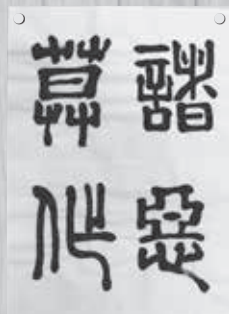 諸惡
莫作